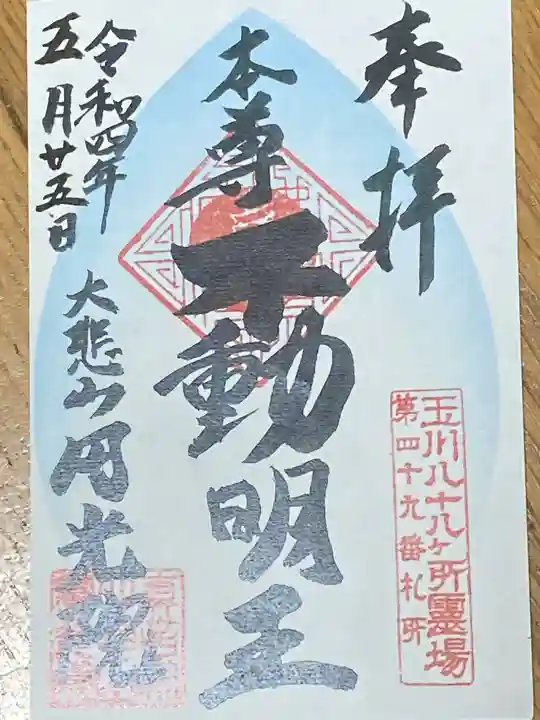 奉拝
本尊
不動明王
令和四年
五月廿五日
大悲山円光院
玉川八十八ヶ所霊場
第四十九番札所